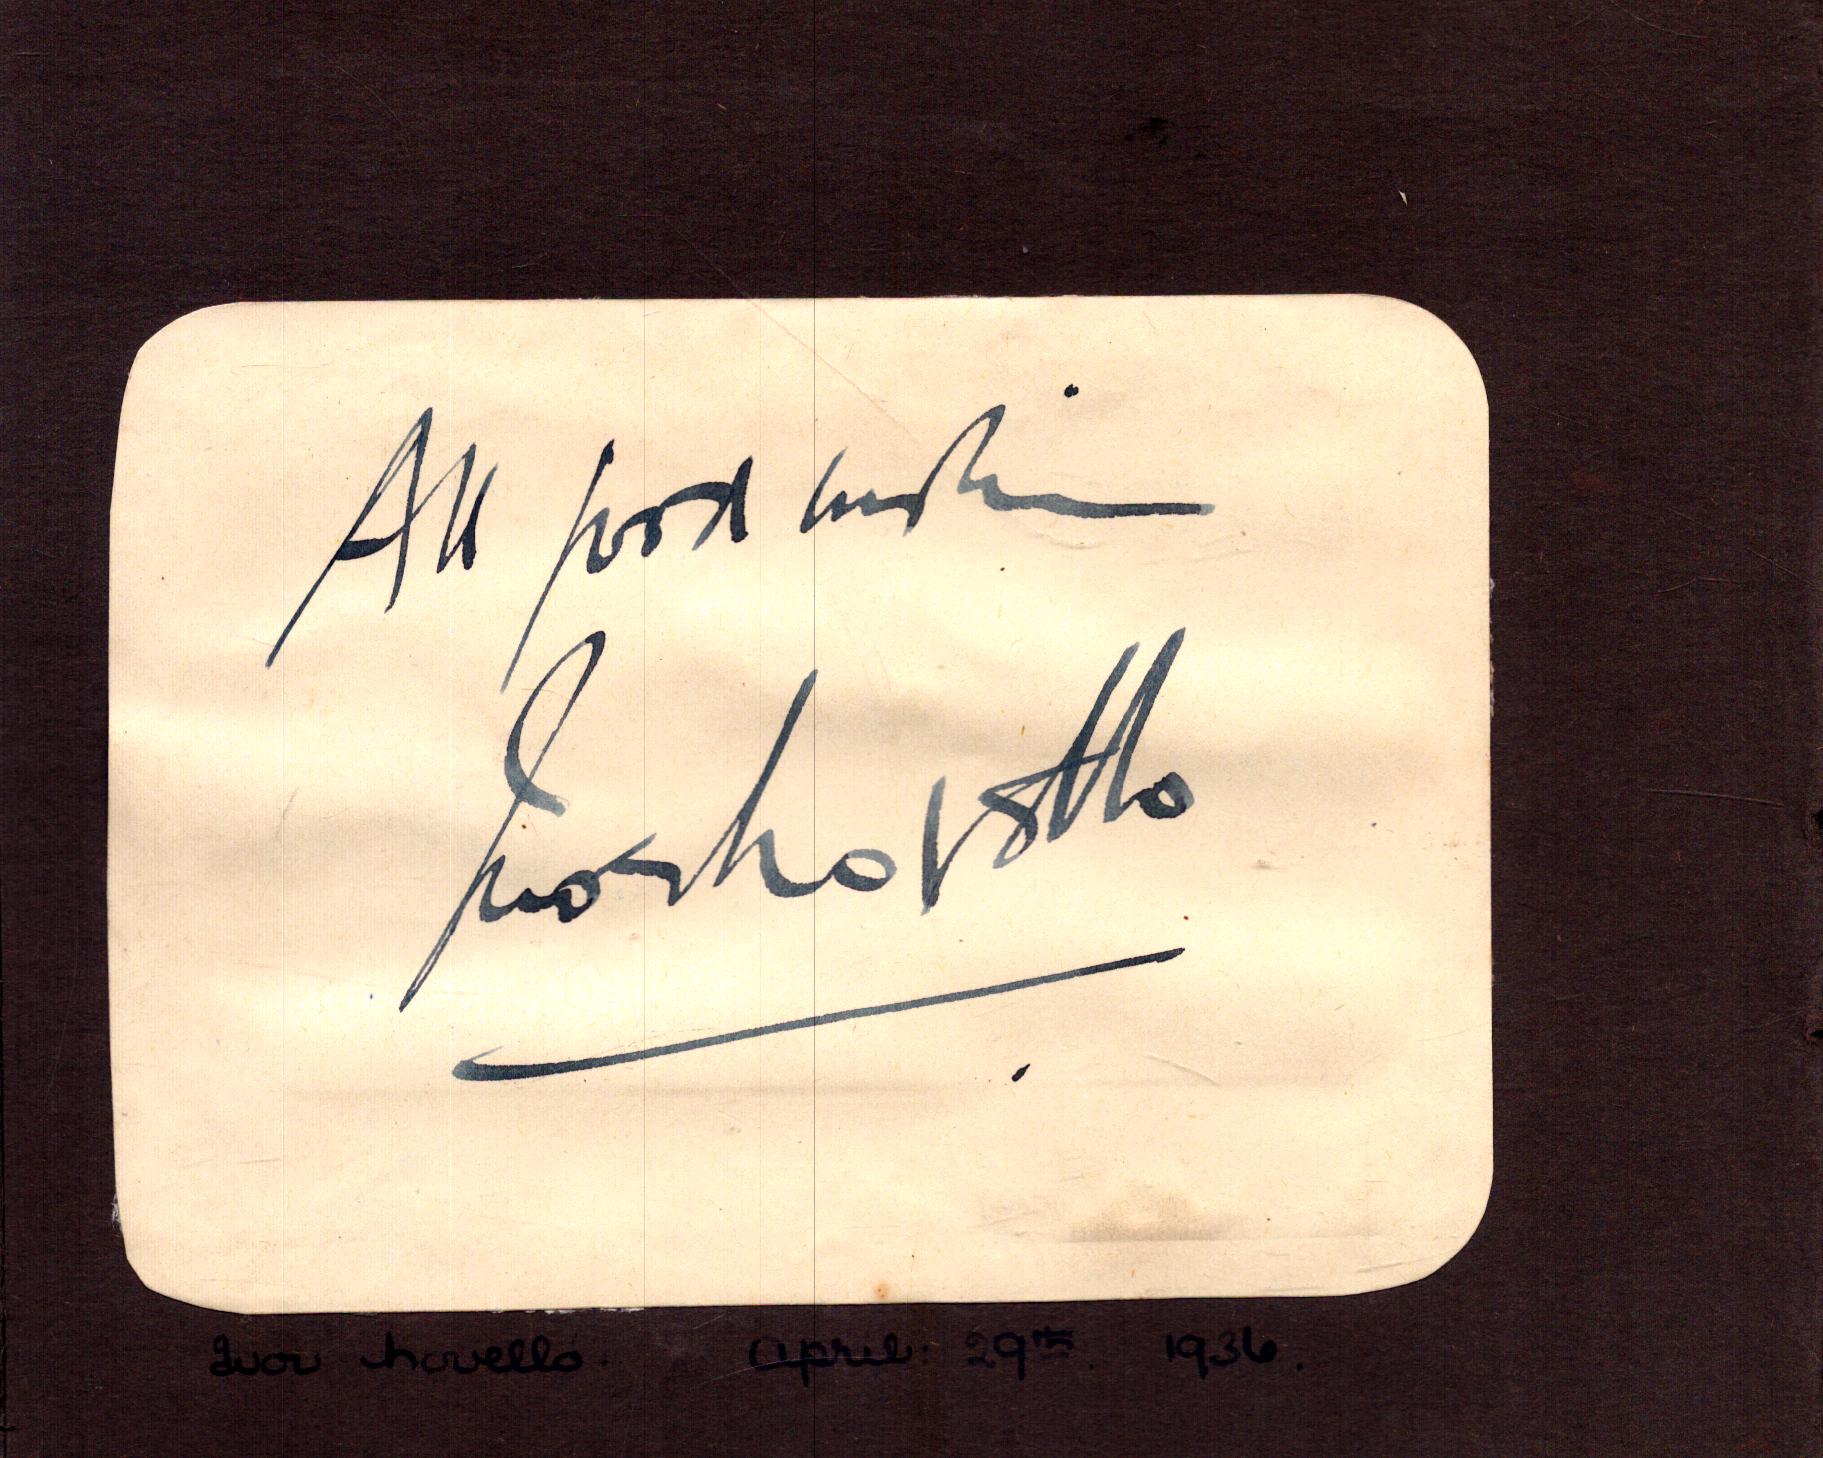 All good wishes
Ivor Novello
Ivor Novello. April. 29th. 1936.